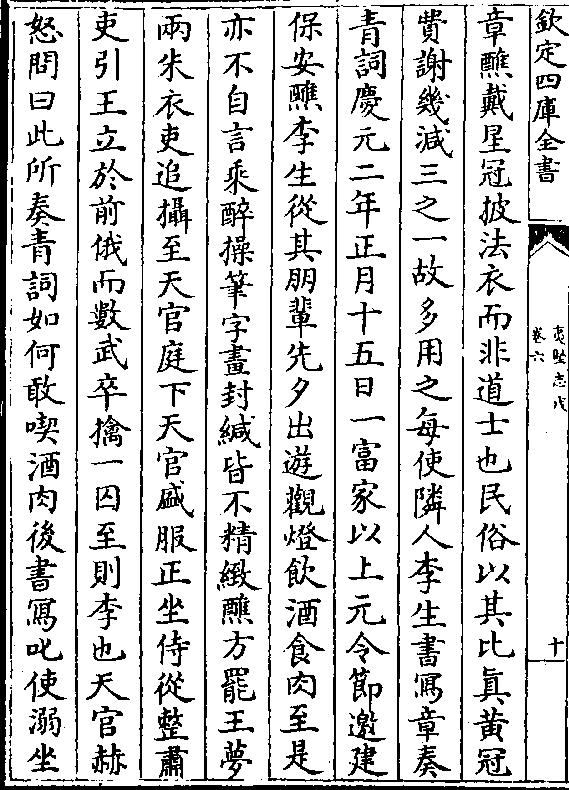 欽定四庫全書
夷堅志戊
卷六
十
章醮戴星冠披法衣而非道士也民俗以其比真黃冠
費謝幾減三之一故多用之每使隣人李生書寫章奏
青詞慶元二年正月十五日一富家以上元令節邀建
保安醮李生從其朋輩先夕出遊觀燈飲酒食肉至是
亦不自言乘醉操筆字畫封緘皆不精緻醮方罷王夢
兩朱衣吏追攝至天官庭下天官盛服正坐侍從整肅
吏引王立於前俄而數武卒擒一囚至則李也天官赫
怒問曰此所奏青詞如何敢喫酒肉後書寫叱使溺坐